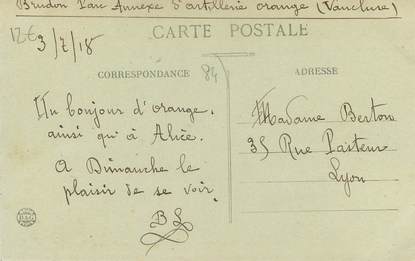 Brudon Parc Annexe d'artillerie Orange (Vaucluse)
12€
3/7/18
CARTE POSTALE
CORRESPONDANCE
84
ADRESSE
Un bonjour d'orange,
ainsi qu'à Alice.
A Dimanche le
plaisir de se voir
BL
Madame Berton
35 Rue Pasteur
Lyon